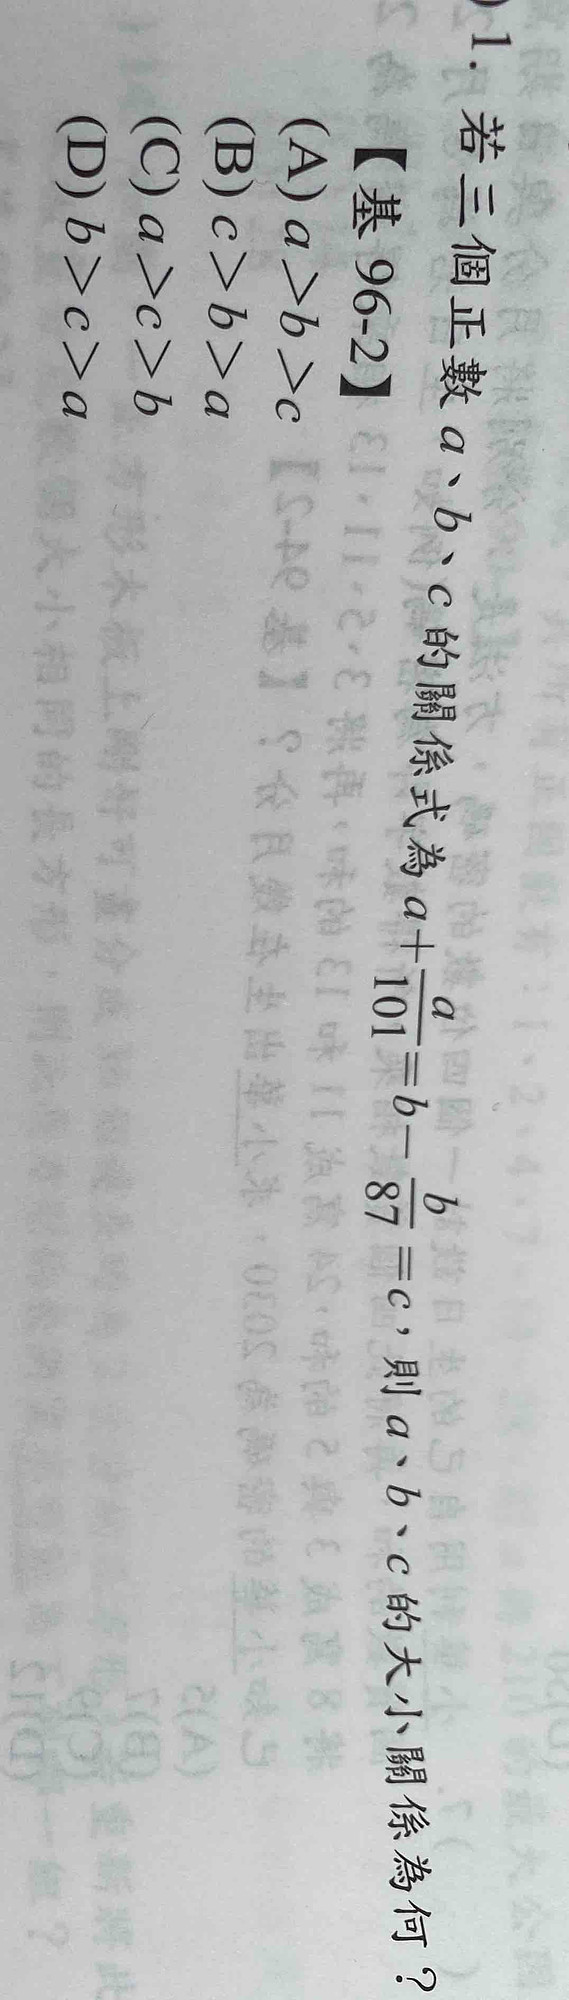 1. 若三個正數 a、b、c 的關係式為 a+a/101=b-b/87=c，則 a、b、c 的大小關係為何？
【基 96-2】
(A) a>b>c
(B) c>b>a
(C) a>c>b
(D) b>c>a